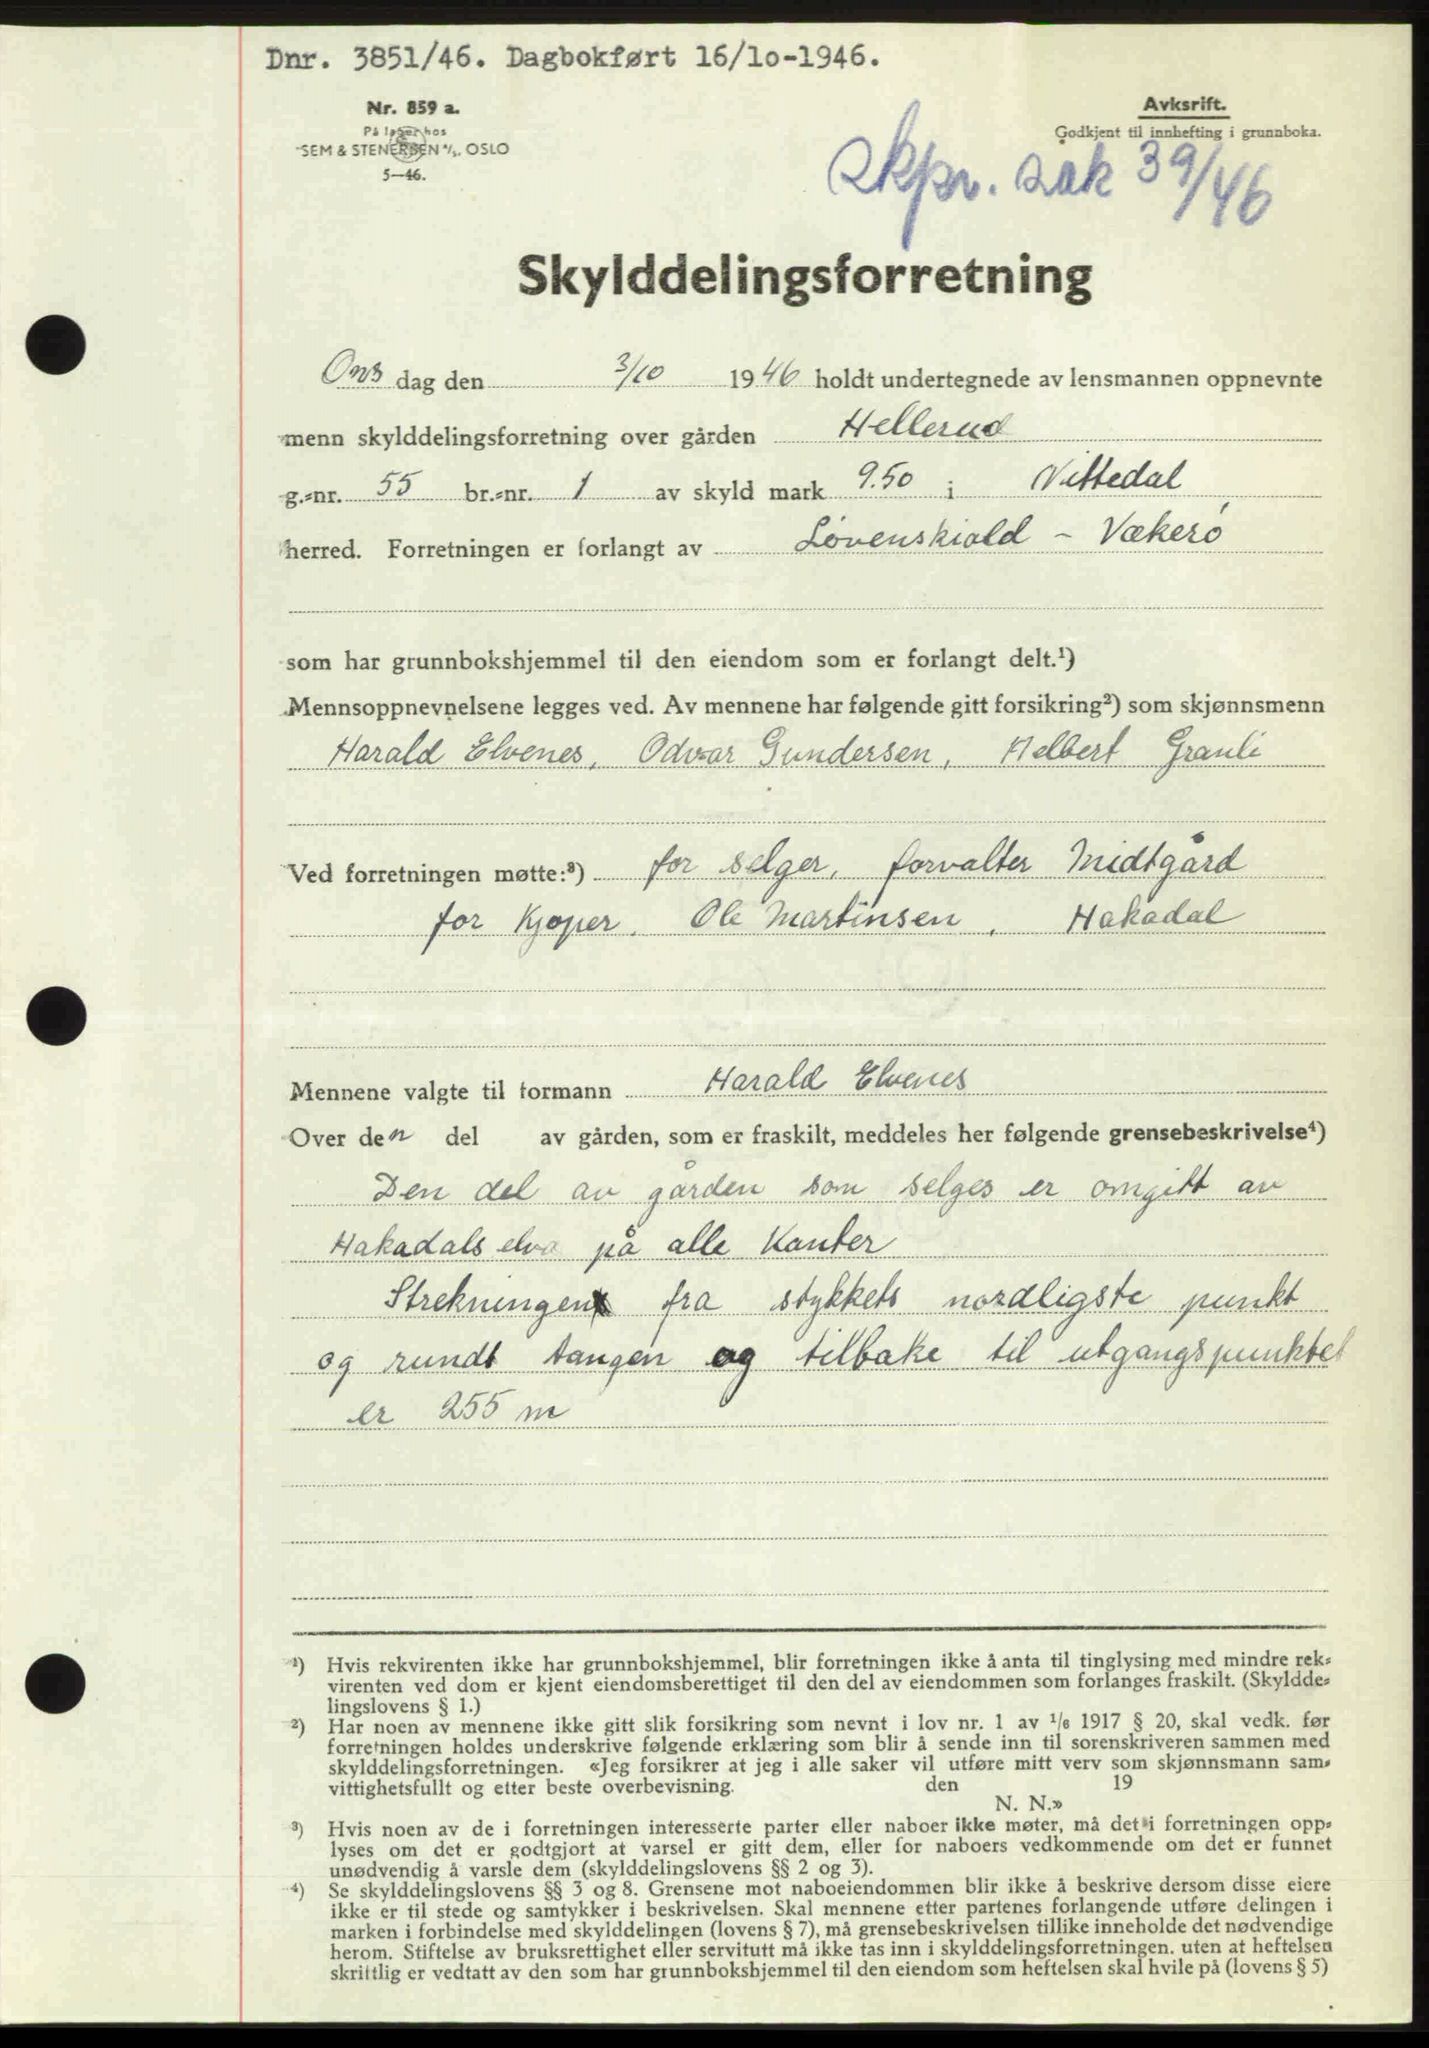 Dnr. 3851/46. Dagbokført 16/10-1946.
Nr. 859 a.
På lager hos
SEM & STENERSEN A/S, OSLO
5—46.
Avksrift.
Godkjent til innhefting i grunnboka.
skpr. sak 39/46
Skylddelingsforretning
Ons dag den 3/10 1946 holdt undertegnede av lensmannen oppnevnte
menn skylddelingsforretning over gården Hellerud
g.-nr. 55 br.-nr. 1 av skyld mark 9.50 i Nittedal
herred. Forretningen er forlangt av Løvenskiold - Vækerø
som har grunnbokshjemmel til den eiendom som er forlangt delt.¹)
Mennsoppnevnelsene legges ved. Av mennene har følgende gitt forsikring²) som skjønnsmenn
Harald Elvenes, Odvar Gundersen, Helbert Granli
Ved forretningen møtte:³) for selger, forvalter Midtgård
for Kjøper. Ole Martinsen, Hakadal
Mennene valgte til formann Harald Elvenes
Over den del av gården, som er fraskilt, meddeles her følgende grensebeskrivelse⁴)
Den del av gården som selges er omgitt av
Hakadals elva på alle Kanter
Strekningen fra stykkets nordligste punkt
og rundt tangen og tilbake til utgangspunktet
er 255 m
¹) Hvis rekvirenten ikke har grunnbokshjemmel, blir forretningen ikke å anta til tinglysing med mindre rek-
virenten ved dom er kjent eiendomsberettiget til den del av eiendommen som forlanges fraskilt. (Skyldde-
lingslovens § 1.)
²) Har noen av mennene ikke gitt slik forsikring som nevnt i lov nr. 1 av 1/6 1917 § 20, skal vedk. før
forretningen holdes underskrive følgende erklæring som blir å sende inn til sorenskriveren sammen med
skylddelingsforretningen. «Jeg forsikrer at jeg i alle saker vil utføre mitt verv som skjønnsmann sam-
vittighetsfullt og etter beste overbevisning. den 19
N. N.»
³) Hvis noen av de i forretningen interesserte parter eller naboer ikke møter, må det i forretningen opp-
lyses om det er godtgjort at varsel er gitt dem, eller for naboers vedkommende om det er funnet
unødvendig å varsle dem (skylddelingslovens §§ 2 og 3).
⁴) Se skylddelingslovens §§ 3 og 8. Grensene mot naboeiendommen blir ikke å beskrive dersom disse eiere
ikke er til stede og samtykker i beskrivelsen. Skal mennene etter partenes forlangende utføre delingen i
marken i forbindelse med skylddelingen (lovens § 7), må grensebeskrivelsen tillike inneholde det nødvendige
herom. Stiftelse av bruksrettighet eller servitutt må ikke tas inn i skylddelingsforretningen. uten at heftelsen
skriftlig er vedtatt av den som har grunnbokshjemmel til den eiendom som heftelsen skal hvile på (lovens § 5)